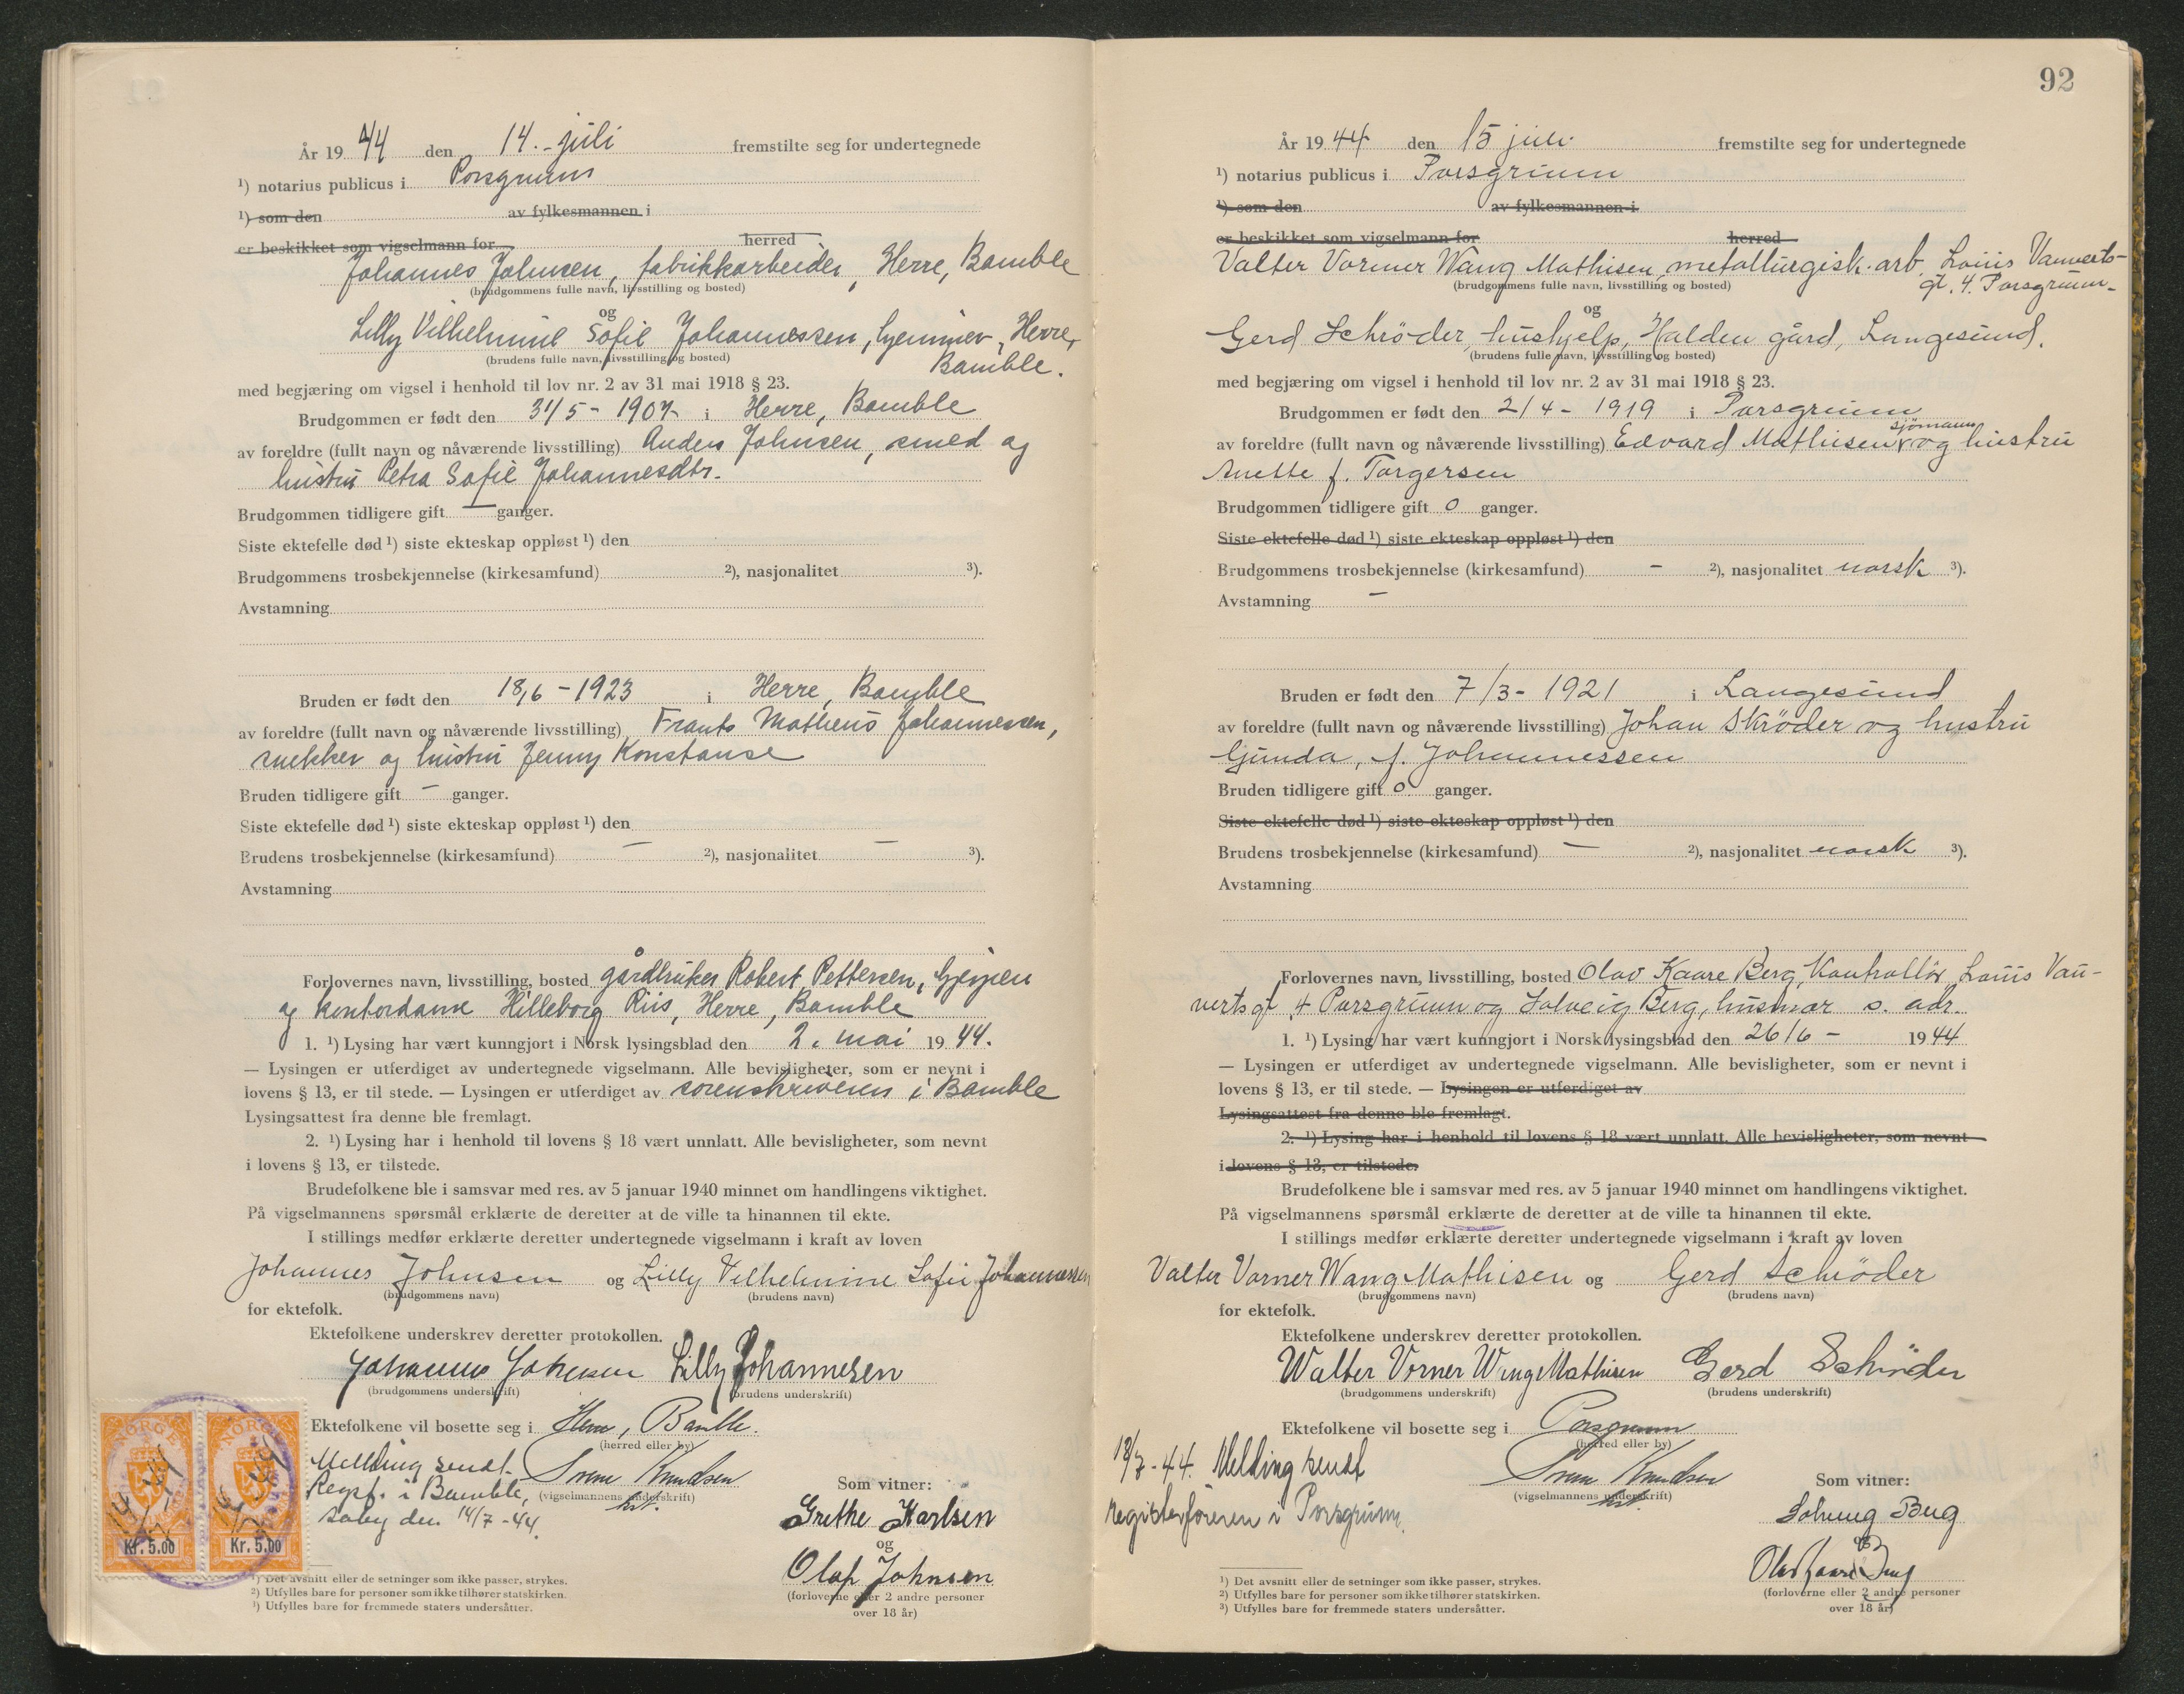 År 1944 den 14. juli fremstilte seg for undertegnede
¹) notarius publicus i Porsgrunn
¹) som den av fylkesmannen i
er beskikket som vigselmann for herred
Johannes Johnsen, fabrikkarbeider, Herre, Bamble
(brudgommens fulle navn, livsstilling og bosted)
og
Lilly Vilhelmine Sofie Johannessen, hjemmev., Herre,
(brudens fulle navn, livsstilling og bosted)
Bamble.
med begjæring om vigsel i henhold til lov nr. 2 av 31 mai 1918 § 23.
Brudgommen er født den 31/5 - 1907 i Herre, Bamble
av foreldre (fullt navn og nåværende livsstilling) Anders Johnsen, smed og
hustru Petra Sofie Johannesdtr.
Brudgommen tidligere gift — ganger.
Siste ektefelle død ¹) siste ekteskap oppløst ¹) den
Brudgommens trosbekjennelse (kirkesamfund) ²), nasjonalitet ³).
Avstamning
Bruden er født den 18/6 - 1923 i Herre, Bamble
av foreldre (fullt navn og nåværende livsstilling) Frants Matheus Johannessen,
snekker og hustru Jenny Konstanse
Bruden tidligere gift - ganger.
Siste ektefelle død ¹) siste ekteskap oppløst ¹) den
Brudens trosbekjennelse (kirkesamfund) — ²), nasjonalitet — ³).
Avstamning
Forlovernes navn, livsstilling, bosted gårdbruker Robert Pettersen, Gjerpen
og kontordame Hilleborg Riis, Herre, Bamble
1. ¹) Lysing har vært kunngjort i Norsk lysingsblad den 2. mai 1944.
— Lysingen er utferdiget av undertegnede vigselmann. Alle bevisligheter, som er nevnt i
lovens § 13, er til stede. — Lysingen er utferdiget av sorenskriveren i Bamble
Lysingsattest fra denne ble fremlagt.
2. ¹) Lysing har i henhold til lovens § 18 vært unnlatt. Alle bevisligheter, som nevnt
i lovens § 13, er tilstede.
Brudefolkene ble i samsvar med res. av 5 januar 1940 minnet om handlingens viktighet.
På vigselmannens spørsmål erklærte de deretter at de ville ta hinannen til ekte.
I stillings medfør erklærte deretter undertegnede vigselmann i kraft av loven
Johannes Johnsen og Lilly Vilhelmine Sofie Johannessen
(brudgommens navn) (brudens navn)
for ektefolk.
Ektefolkene underskrev deretter protokollen.
Johannes Johnsen Lilly Johannesen
(brudgommens underskrift) (brudens underskrift)
Ektefolkene vil bosette seg i Herre, Bamble.
(herred eller by)
Melding sendt Svein Knudsen
Regf. i Bamble, (vigselmannens underskrift) Som vitner:
14/7-44. kst. Grethe Karlsen
og
Olaf Johnsen
(forloverne eller 2 andre personer
over 18 år)
NORGE NORGE
Kr. 5.00 Kr. 5.00
¹) Det avsnitt eller de setninger som ikke passer, strykes.
²) Utfylles bare for personer som ikke tilhører statskirken.
³) Utfylles bare for fremmede staters undersåtter.
92
År 1944 den 15 juli fremstilte seg for undertegnede
¹) notarius publicus i Porsgrunn
¹) som den av fylkesmannen i
er beskikket som vigselmann for herred
Valter Vorner Wang Mathisen, metallurgisk. arb. Louis Vauverts-
(brudgommens fulle navn, livsstilling og bosted) gt. 4. Porsgrunn-
og
Gerd Schrøder, hushjelp, Halden gård, Langesund.
(brudens fulle navn, livsstilling og bosted)
med begjæring om vigsel i henhold til lov nr. 2 av 31 mai 1918 § 23.
Brudgommen er født den 2/4 - 1919 i Porsgrunn
av foreldre (fullt navn og nåværende livsstilling) Edvard Mathisen sjømann og hustru
Anette f. Torgersen
Brudgommen tidligere gift 0 ganger.
Siste ektefelle død ¹) siste ekteskap oppløst ¹) den
Brudgommens trosbekjennelse (kirkesamfund) - ²), nasjonalitet norsk ³).
Avstamning -
Bruden er født den 7/3 - 1921 i Langesund
av foreldre (fullt navn og nåværende livsstilling) Johan Skrøder og hustru
Gunda, f. Johannessen
Bruden tidligere gift 0 ganger.
Siste ektefelle død ¹) siste ekteskap oppløst ¹) den
Brudens trosbekjennelse (kirkesamfund) — ²), nasjonalitet norsk ³).
Avstamning
Forlovernes navn, livsstilling, bosted Olav Kaare Berg, Kontrollør, Louis Vau-
vertsgt 4 Porsgrunn og Solveig Berg, husmor s. adr.
1. ¹) Lysing har vært kunngjort i Norsk lysingsblad den 26/6 - 1944
— Lysingen er utferdiget av undertegnede vigselmann. Alle bevisligheter, som er nevnt i
lovens § 13, er til stede. — Lysingen er utferdiget av
Lysingsattest fra denne ble fremlagt.
2. ¹) Lysing har i henhold til lovens § 18 vært unnlatt. Alle bevisligheter, som nevnt
i lovens § 13, er tilstede.
Brudefolkene ble i samsvar med res. av 5 januar 1940 minnet om handlingens viktighet.
På vigselmannens spørsmål erklærte de deretter at de ville ta hinannen til ekte.
I stillings medfør erklærte deretter undertegnede vigselmann i kraft av loven
Valter Vorner Wang Mathisen og Gerd Schrøder
(brudgommens navn) (brudens navn)
for ektefolk.
Ektefolkene underskrev deretter protokollen.
Walter Vorner Wang Mathisen Gerd Schrøder
(brudgommens underskrift) (brudens underskrift)
Ektefolkene vil bosette seg i Porsgrunn
(herred eller by)
18/7-44. Melding sendt Svein Knudsen
registerføreren i Porsgrunn. (vigselmannens underskrift) Som vitner:
kst. Solveig Berg
og
Olav Kaare Berg
(forloverne eller 2 andre personer
over 18 år)
¹) Det avsnitt eller de setninger som ikke passer, strykes.
²) Utfylles bare for personer som ikke tilhører statskirken.
³) Utfylles bare for fremmede staters undersåtter.